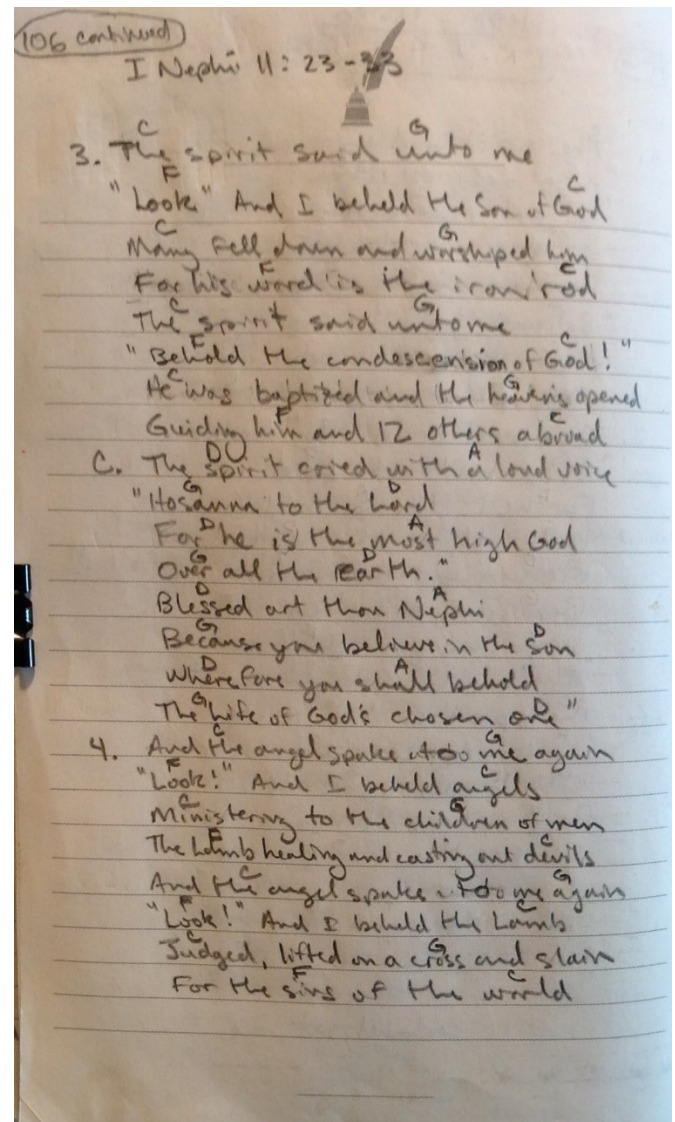 106 continued
I Nephi 11: 23-33
C G
3. The spirit said unto me
F C
"Look" And I beheld the Son of God
C G
Many fell down and worshiped him
F C
For his word is the iron rod
C G
The spirit said unto me
F C
"Behold the condescension of God!"
C G
He was baptized and the heavens opened
F C
Guiding him and 12 others abroad
D A
C. The spirit cried with a loud voice
G D
"Hosanna to the Lord
D A
For he is the most high God
G D
Over all the Earth."
D A
Blessed art thou Nephi
G D
Because you believe in the Son
D A
Wherefore you shall behold
G D
The life of God's chosen one"
C G
4. And the angel spake to me again
F C
"Look!" And I beheld angels
C G
Ministering to the children of men
F C
The Lamb healing and casting out devils
C G
And the angel spake to me again
F C
"Look!" And I beheld the Lamb
C G
Judged, lifted on a cross and slain
F C
For the sins of the world